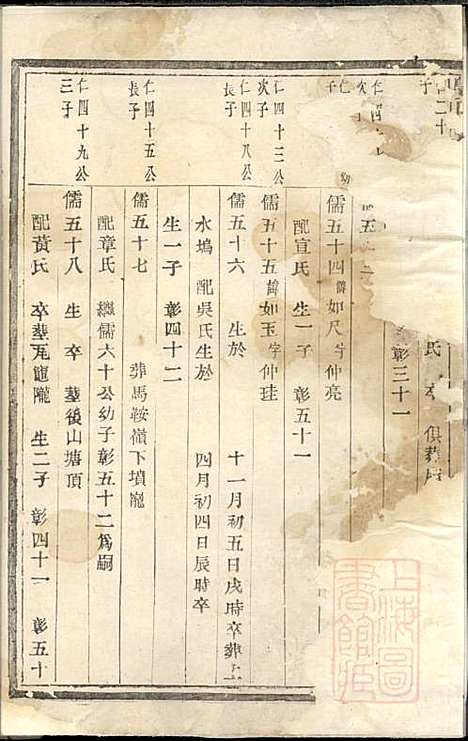 子
二十
氏 卒 俱葬
彰三十一
次子
仁四
子
儒五十四諱如尺字仲亮
配宣氏 生一子 彰五十一
仁四十三公
次子
儒五十五諱如玉字仲珪
仁四十八公
長子
儒五十六 生於 十一月初五日戌時卒葬
水塢 配吳氏生於 四月初四日辰時卒
生一子 彰四十二
仁四十五公
長子
儒五十七 葬馬鞍嶺下墳隴
配章氏 繼儒六十公幼子彰五十二為嗣
仁四十九公
三子
儒五十八 生 卒 墓後山塘頂
配黃氏 卒墓尾隴 生二子 彰四十一 彰五十
上海圖書館藏